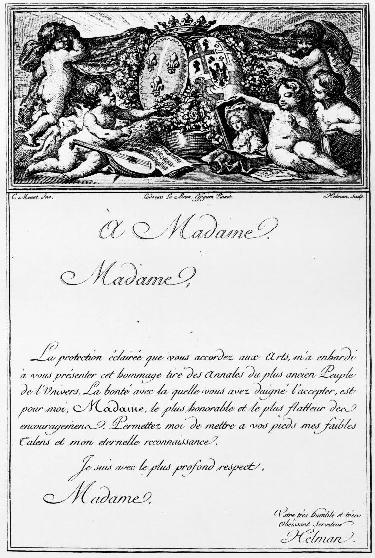 C. Monet Inv.
Helman Sculp.
A Madame.
Madame,
La protection éclairée que vous accordez aux Arts, m'a enhardi
à vous présenter cet hommage tiré des Annales du plus ancien Peuple
de l'Univers. La bonté avec la quelle vous avez daigné l'accepter, est
pour moi, Madame, le plus honorable et le plus flatteur des
encouragemens. Permettez moi de mettre a vos pieds mes faibles
talens et mon eternelle reconnaissance.
Je suis avec le plus profond respect,
Madame,
Votre très humble et très
obeissant Serviteur
Helman.